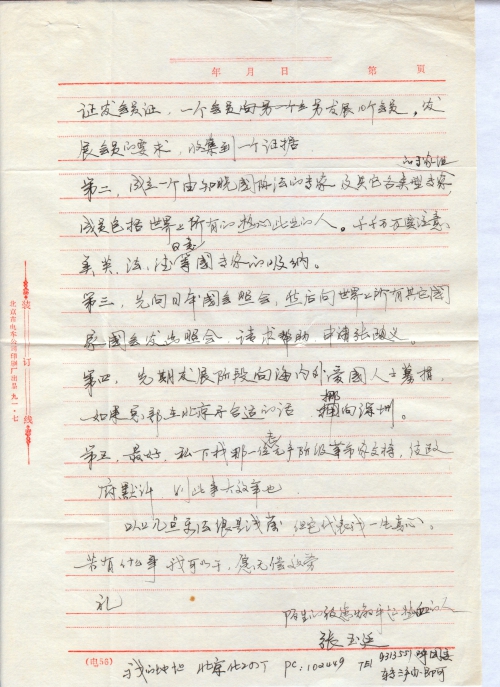 年 月 日 第 页
证发会员证，一个会员向另一个 发展10个会员，发
展会员的要求，收集到一个证据
的专家组
第二，成立一个由知晓国际法的专家及其它各类型专家
成员包括世界上所有的热心此业的人。千千万万要注意
日意
美英、法、德等国专家的吸纳。
第三，先向日本国会照会，然后向世界上所有其它国
家国会发出照会，请求帮助，申请张随义
第四，先期发展阶段向海内外爱国人士募捐，
如果总部在北京不合适的话 挪向深圳。
第五，最好，私下找那一位老 阶级革命家支持，使政
府默许 则此事大效率也
以上几点乐法很是浅薄 但它代表我一生真心。
若有什么事 我可以干，愿无偿效劳
礼
陌生的 热血的人
张玉廷
(电56) 我的地址 北京 PC：102249 TEL 9313551 呼
装订线
北京市电车公司印刷厂出品 九一·七